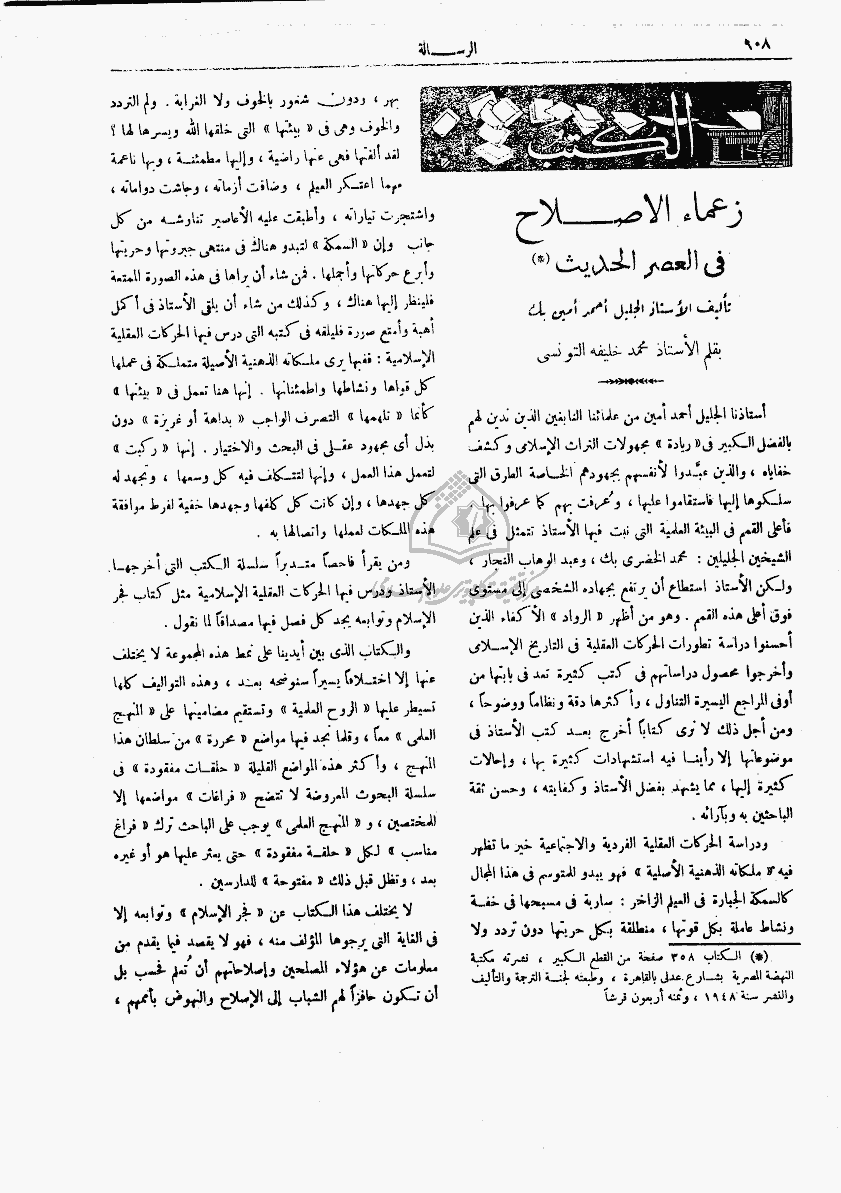 ٩٠٨
الرســـالة
الكتب
زعماء الاصـــلاح
فى العصر الحديث (*)
تأليف الأستاذ الجليل أحمد أمين بك
بقلم الأستاذ محمد خليفه التونسى
أستاذنا الجليل أحمد أمين من علمائنا النابغين الذين ندين لهم
بالفضل الكبير فى « ريادة » مجهولات التراث الإسلامى وكشف
خفاياه ، والذين عبَّدوا لأنفسهم بجهودهم الخاصة الطرق التى
سلكوها إليها فاستقاموا عليها ، وعُرفت بهم كما عرفوا بها .
فأعلى القمم فى البيئة العلمية التى نبت فيها الأستاذ تتمثل فى علم
الشيخين الجليلين : محمد الخضرى بك ، وعبد الوهاب النجار ،
ولكن الأستاذ استطاع أن يرتفع بجهاده الشخصى إلى مستوى
فوق أعلى هذه القمم . وهو من أظهر « الرواد » الأكفاء الذين
أحسنوا دراسة تطورات الحركات العقلية فى التاريخ الإسلامى
وأخرجوا محصول دراساتهم فى كتب كثيرة تعد فى بابتها من
أوفى المراجع اليسيرة التناول ، وأكثرها دقة ونظاماً ووضوحاً ،
ومن أجل ذلك لا نرى كتاباً أخرج بعد كتب الأستاذ فى
موضوعاتها إلا رأينا فيه استشهادات كثيرة بها ، وإحالات
كثيرة إليها ، مما يشهد بفضل الأستاذ وكفايته ، وحسن ثقة
الباحثين به وبآرائه .
ودراسة الحركات العقلية الفردية والاجتماعية خير ما تظهر
فيه « ملكاته الذهنية الأصلية » فهو يبدو للمتوسم فى هذا المجال
كالسمكة الجبارة فى العيلم الزاخر : سارية فى مسبحها فى خفة
ونشاط عاملة بكل قوتها ، منطلقة بكل حريتها دون تردد ولا
(*) الكتاب ٣٥٨ صفحة من القطع الكبير ، نشرته مكتبة
النهضة المصرية بشارع عدلى بالقاهرة ، وطبعته لجنة الترجمة والتأليف
والنشر سنة ١٩٤٨ ، وثمنه أربعون قرشاً
بهر ، ودون شعور بالخوف ولا الغرابة . ولم التردد
والخوف وهى فى « بيئتها » التى خلقها الله ويسرها لها ؟
لقد ألفتها فهى عنها راضية ، وإليها مطمئنة ، وبها ناعمة
مهما اعتكر العيلم ، وضاقت أزماته ، وجاشت دواماته ،
واشتجرت تياراته ، وأطبقت عليه الأعاصير تناوشه من كل
جانب وإن « السمكة » لتبدو هناك فى منتهى جبروتها وحريتها
وأبرع حركاتها وأجملها . فمن شاء أن يراها فى هذه الصورة الممتعة
فلينظر إليها هناك ، وكذلك من شاء أن يلقى الأستاذ فى أكمل
أهبة وأمتع صورة فليلقه فى كتبه التى درس فيها الحركات العقلية
الإسلامية : ففيها يرى ملكاته الذهنية الأصيلة متملكة فى عملها
كل قواها ونشاطها واطمئنانها . إنها هنا تعمل فى « بيئتها »
كأنما « تلهمها » التصرف الواجب « بداهة أو غريزة » دون
بذل أى مجهود عقلى فى البحث والاختيار . إنها « ركبت »
لتعمل هذا العمل ، وإنها لتتكلف فيه كل وسعها ، وتجهد له
كل جهدها ، وإن كانت كل كلفها وجهدها خفية لفرط موافقة
هذه الملكات لعملها واتصالها به .
ومن يقرأ فاحصاً متدبراً سلسلة الكتب التى أخرجها
الأستاذ ودرس فيها الحركات العقلية الإسلامية مثل كتاب فجر
الإسلام وتوابعه يجد كل فصل فيها مصداقاً لما نقول .
والكتاب الذى بين أيدينا على نمط هذه المجموعة لا يختلف
عنها إلا اختلافاً يسيراً سنوضحه بعد ، وهذه التواليف كلها
تسيطر عليها « الروح العلمية » وتستقيم مضامينها على « المنهج
العلمى » معاً ، وقلما نجد فيها مواضع « محررة » من سلطان هذا
المنهج ، وأكثر هذه المواضع القليلة « حلقات مفقودة » فى
سلسلة البحوث المعروضة لا تتضح « فراغات » مواضعها إلا
للمختصين ، و « المنهج العلمى » يوجب على الباحث ترك « فراغ
مناسب » لكل « حلقة مفقودة » حتى يعثر عليها هو أو غيره
بعد ، وتظل قبل ذلك « مفتوحة » للدارسين .
لا يختلف هذا الكتاب عن « فجر الإسلام » وتوابعه إلا
فى الغاية التى يرجوها المؤلف منه ، فهو لا يقصد فيما يقدم من
معلومات عن هؤلاء المصلحين وإصلاحاتهم أن تُعلم فحسب بل
أن تكون حافزاً لهم الشباب إلى الإصلاح والنهوض بأممهم ،